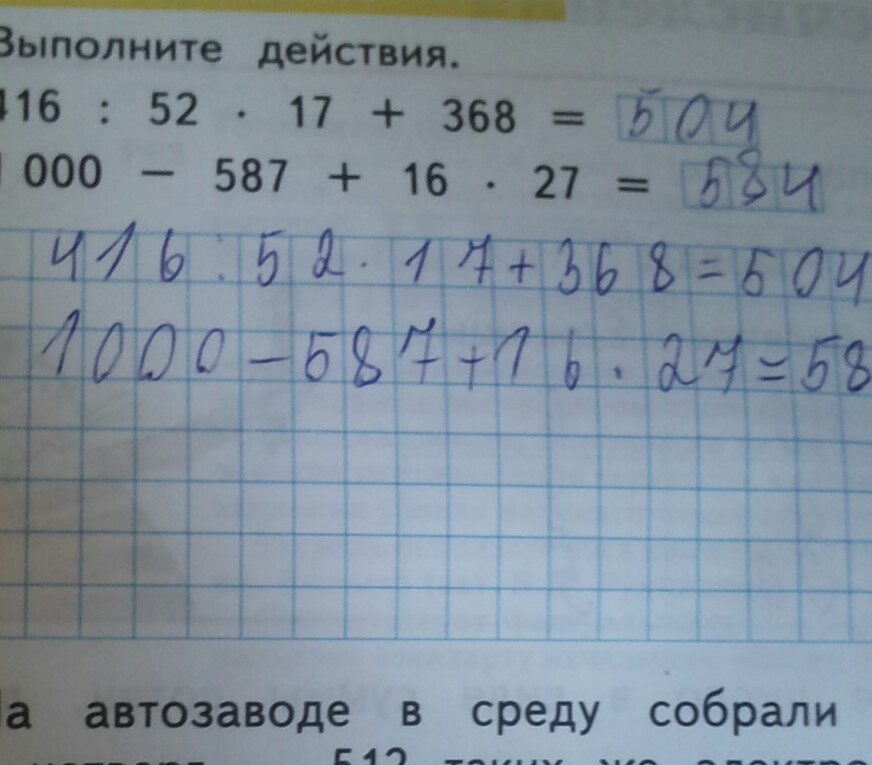 Выполните действия.
416 : 52 · 17 + 368 = 504
1 000 − 587 + 16 · 27 = 584
416:52·17+368=504
1000−587+16·27=58
На автозаводе в среду собрали
512 таких же